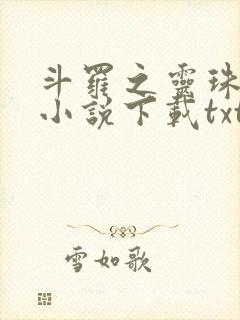 斗羅之靈珠
小説下載txt
雪如歌